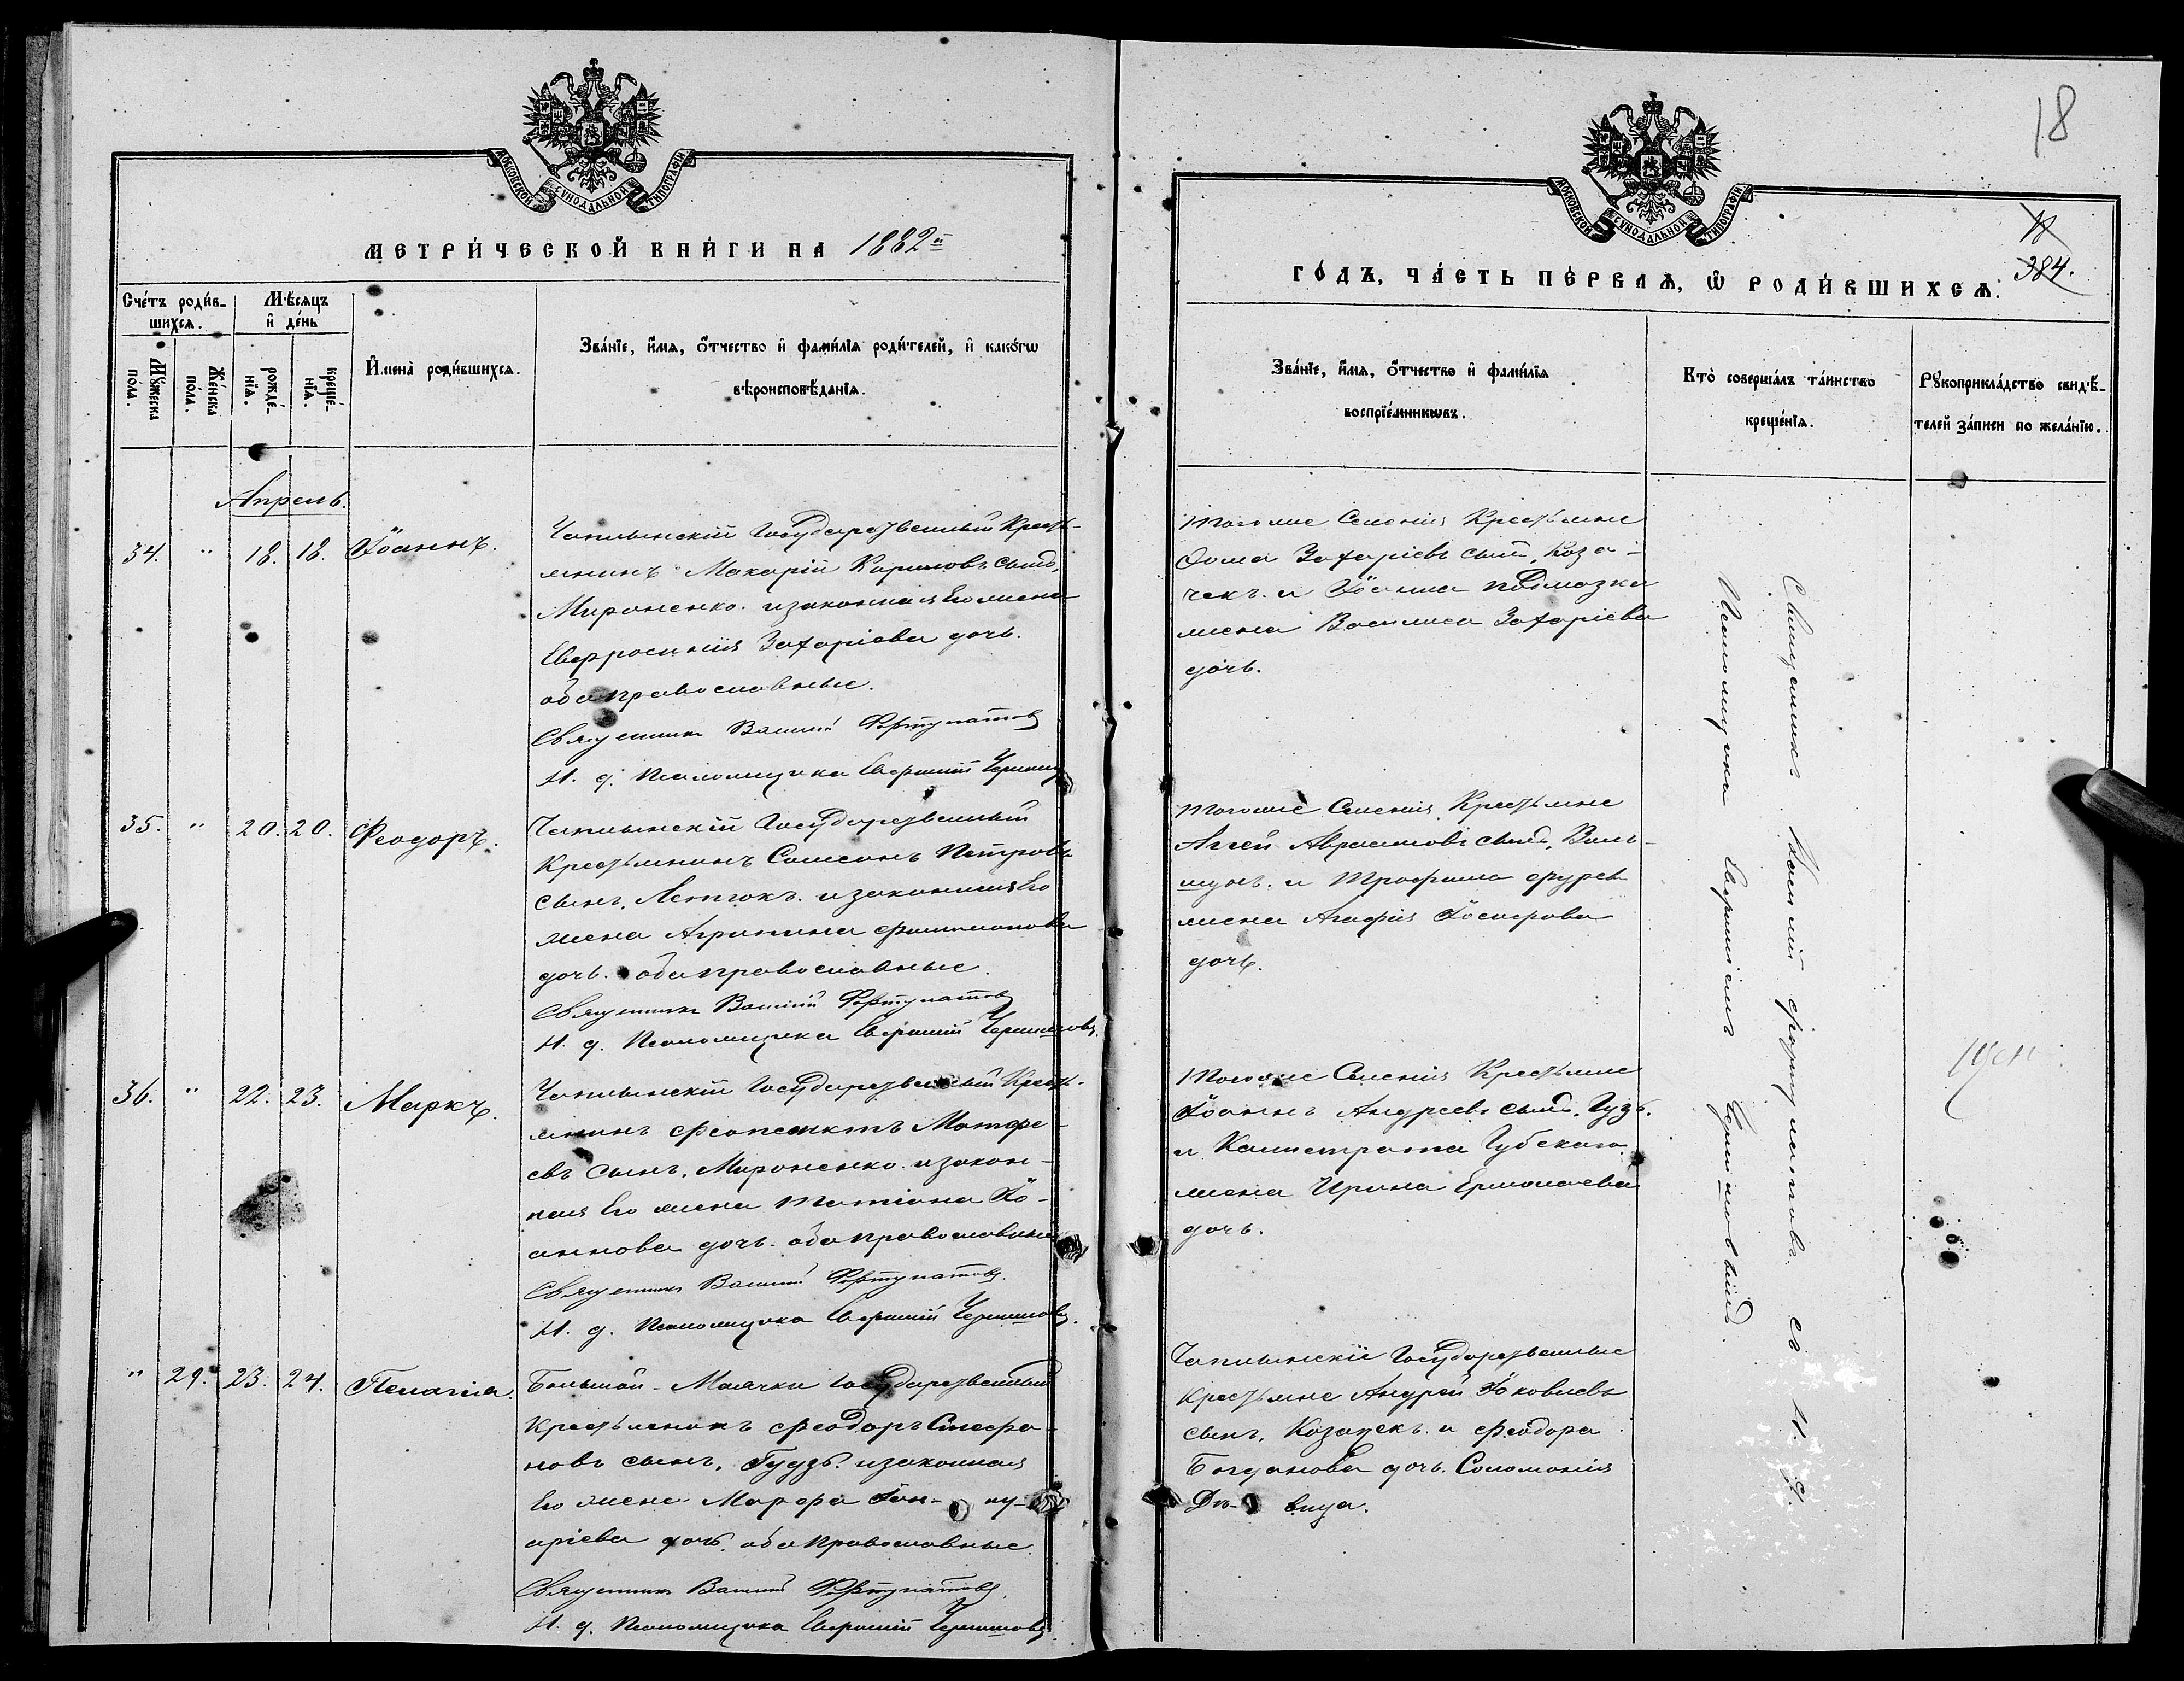 МОСКОВСКОЙ СУНОДАЛЬНОЙ ТИПОГРАФІИ
МЕТРИ́ЧЕСКОЙ КНИ́ГИ НА 1882й
Сче́тъ роди́в-
шихсѧ.
Мѣ́сѧцъ
и҆ де́нь
Мꙋ́жеска
по́ла.
Же́нска
по́ла.
рожде́-
нїѧ.
креще́-
нїѧ.
И҆мена̀ роди́вшихсѧ.
Зва́нїе, и҆́мѧ, ѻ҆́тчество и҆ фами́лїѧ роди́телей, и҆ како́гѡ
вѣроисповѣ́данїѧ.
Апрель.
34. " 18. 18. Іоаннъ.
Чаплынскій Государственный Кресть-
янинъ Макарій Карповъ сынъ,
Мироненко. и законная Его жена
Евфросинія Захаріева дочь.
оба православные.
Священникъ Василій Фортунатовъ
И. д. Псаломщика Евфимій
35. " 20. 20. Феодоръ.
Чаплынскій Государственный
Крестьянинъ Самсонъ Петровъ
сынъ, и законная Его
жена Агрипина Филимонова
дочь. оба православные.
Священникъ Василій Фортунатовъ
И. д. Псаломщика Евфимій
36. " 22. 23. Маркъ.
Чаплынскій Государственный Кресть-
янинъ Феопемктъ Матфе-
евъ сынъ, Мироненко. и закон-
ная Его жена Татіана Іо-
аннова дочь. оба православные
Священникъ Василій Фортунатовъ.
И. д. Псаломщика Евфимій
" 29. 23. 24. Пелагіа.
Большой-Маячки Государственный
Крестьянинъ Феодоръ Стефа-
новъ сынъ, Гудзь. и законная
Его жена Марфа Іан- ну-
аріева дочь. оба православные.
Священникъ Василій Фортунатовъ.
И. д. Псаломщика Евфимій
18
МОСКОВСКОЙ СУНОДАЛЬНОЙ ТИПОГРАФІИ
18
384.
ГО́ДЪ, ЧА́СТЬ ПЕ́РВАѦ, Ѡ҆ РОДИ́ВШИХСѦ.
Зва́нїе, и҆́мѧ, ѻ҆́тчество и҆ фами́лїѧ
воспрїе́мникѡвъ.
Кто̀ соверша́лъ та́инство
креще́нїѧ.
Рꙋкоприкла́дство свидѣ́-
телей за́писи по жела́нїю.
Тогоже Селенія Крестьяне
Фома Захаріевъ сынъ, Коза-
чекъ. и Іоанна
жена Василиса Захаріева
дочь.
Тогоже Селенія Крестьяне
Аггей Авраамовъ сынъ,
и Трофима
жена Агафія Іосифова
дочь.
Тогоже Селенія Крестьяне
Іоаннъ Андреевъ сынъ, Гузь.
и Калистрата Губскаго
жена Ирина Ермолаева
дочь.
Чаплынскіе Государственные
Крестьяне Андрей Іаковлевъ
сынъ, Козачекъ. и Феодора
Богданова дочь. Соломонія
Дѣ- вица.
Священникъ Василій Фортунатовъ съ И. д.
Псаломщика Евфиміемъ